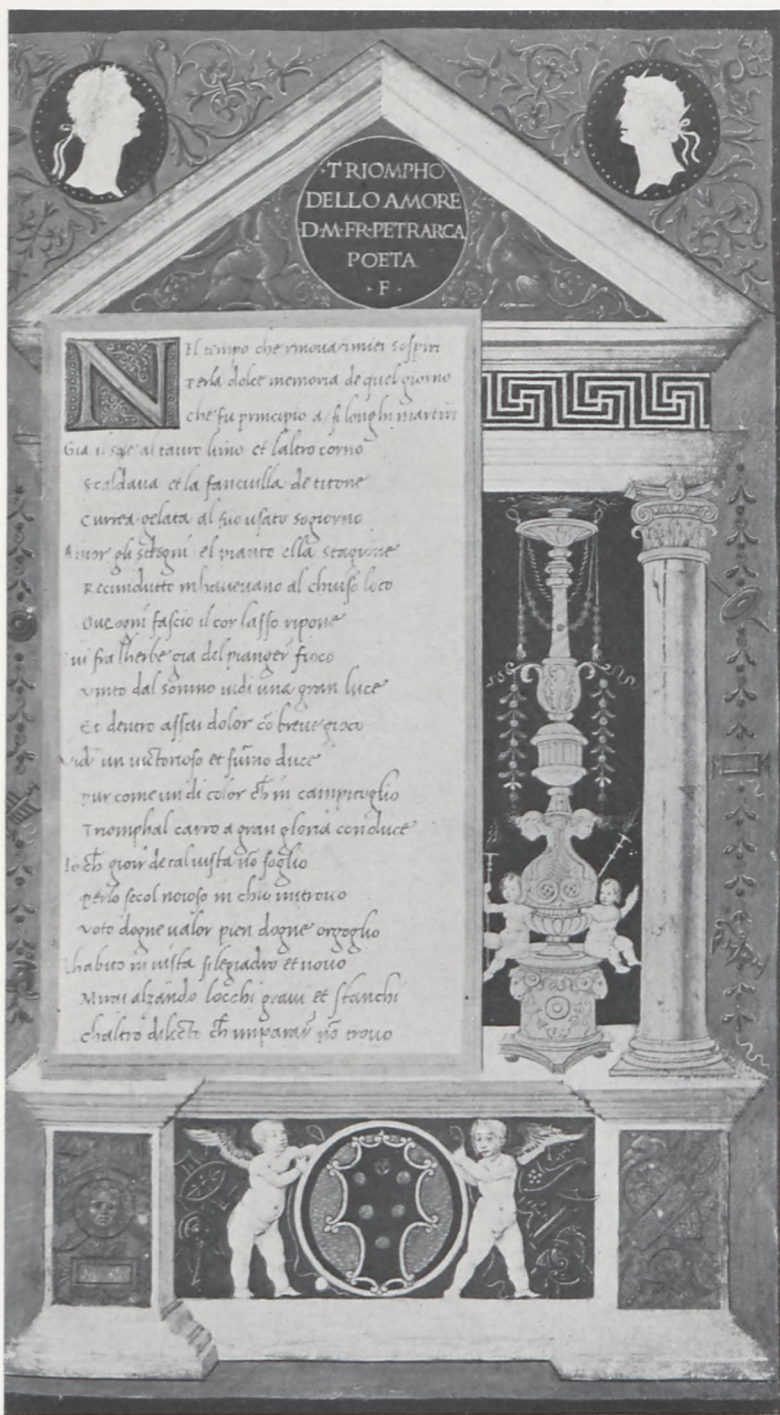 ·TRIOMPHO
DELLO AMORE
D·M·FR·PETRARCA
POETA
·F·
NEl tempo che rinoua i miei sospiri
Perla dolce memoria de quel giorno
che fu principio a si longhi martiri
Gia il sole al tauro luno et laltro corno
Scaldaua et la fanciulla de titone
Currea gelata al suo usato sogiorno
Amor gli sdegni el pianto ella stagione
Recundutto mhaueuano al chiuso loco
Oue ogni fascio il cor lasso ripone
iui fra lherbe gia del pianger fioco
Vinto dal sonno uidi una gran luce
Et dentro assai dolor cō breue gioco
Vidi un uictorioso et sūmo duce
Pur come un di color ch in campitoglio
Triomphal carro a gran gloria conduce
Io ch gioir de tal uista nō soglio
Perlo secol noioso in chio mitrouo
Voto dogne ualor pien dogne orgoglio
Lhabito in uista si legiadro et nouo
Mirai alzando locchi graui et stanchi
chaltro dilecto ch imparar nō trouo